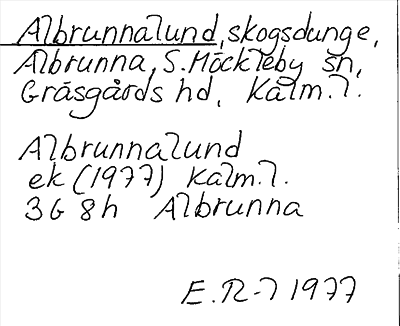 Albrunnalund, skogsdunge,
Albrunna, S. Möckleby sn,
Gräsgårds hd, Kalm. l.
Albrunnalund
ek (1977) Kalm. l.
3G 8h Albrunna
E. R-7 1977